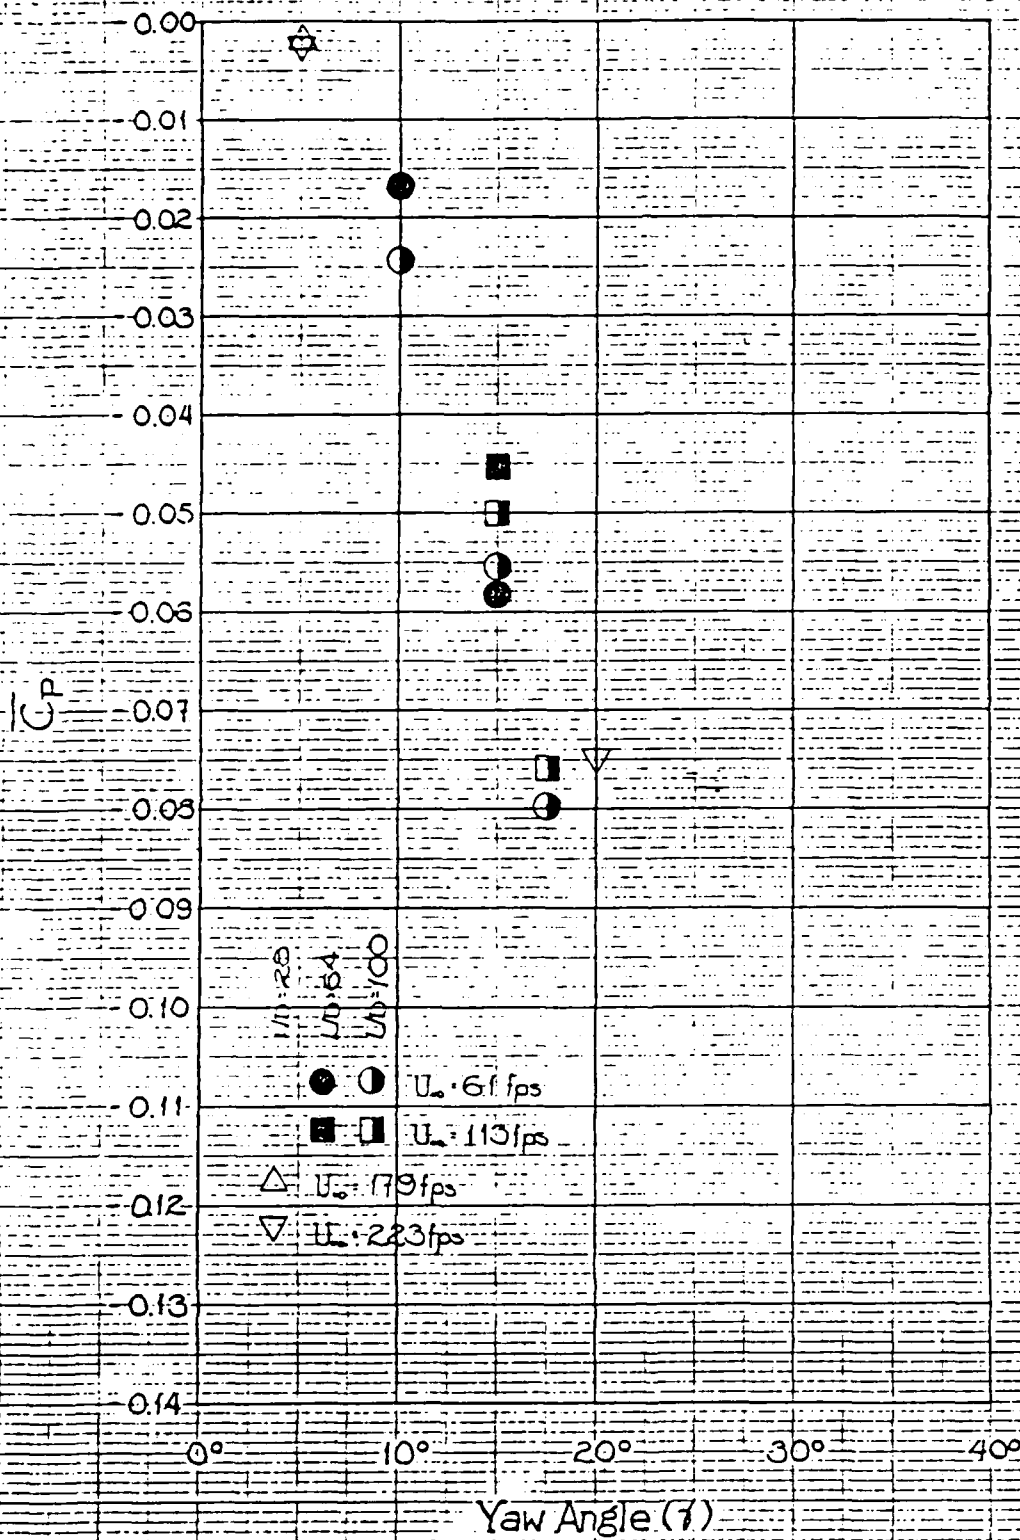 0.00
0.01
0.02
0.03
0.04
0.05
0.06
0.07
0.08
0.09
0.10
0.11
0.12
0.13
0.14
C̅P
L/D=28
L/D=64
L/D=100
U∞=61 fps
U∞=113fps
U∞=179fps
U∞=223fps
0° 10° 20° 30° 40°
Yaw Angle (γ)